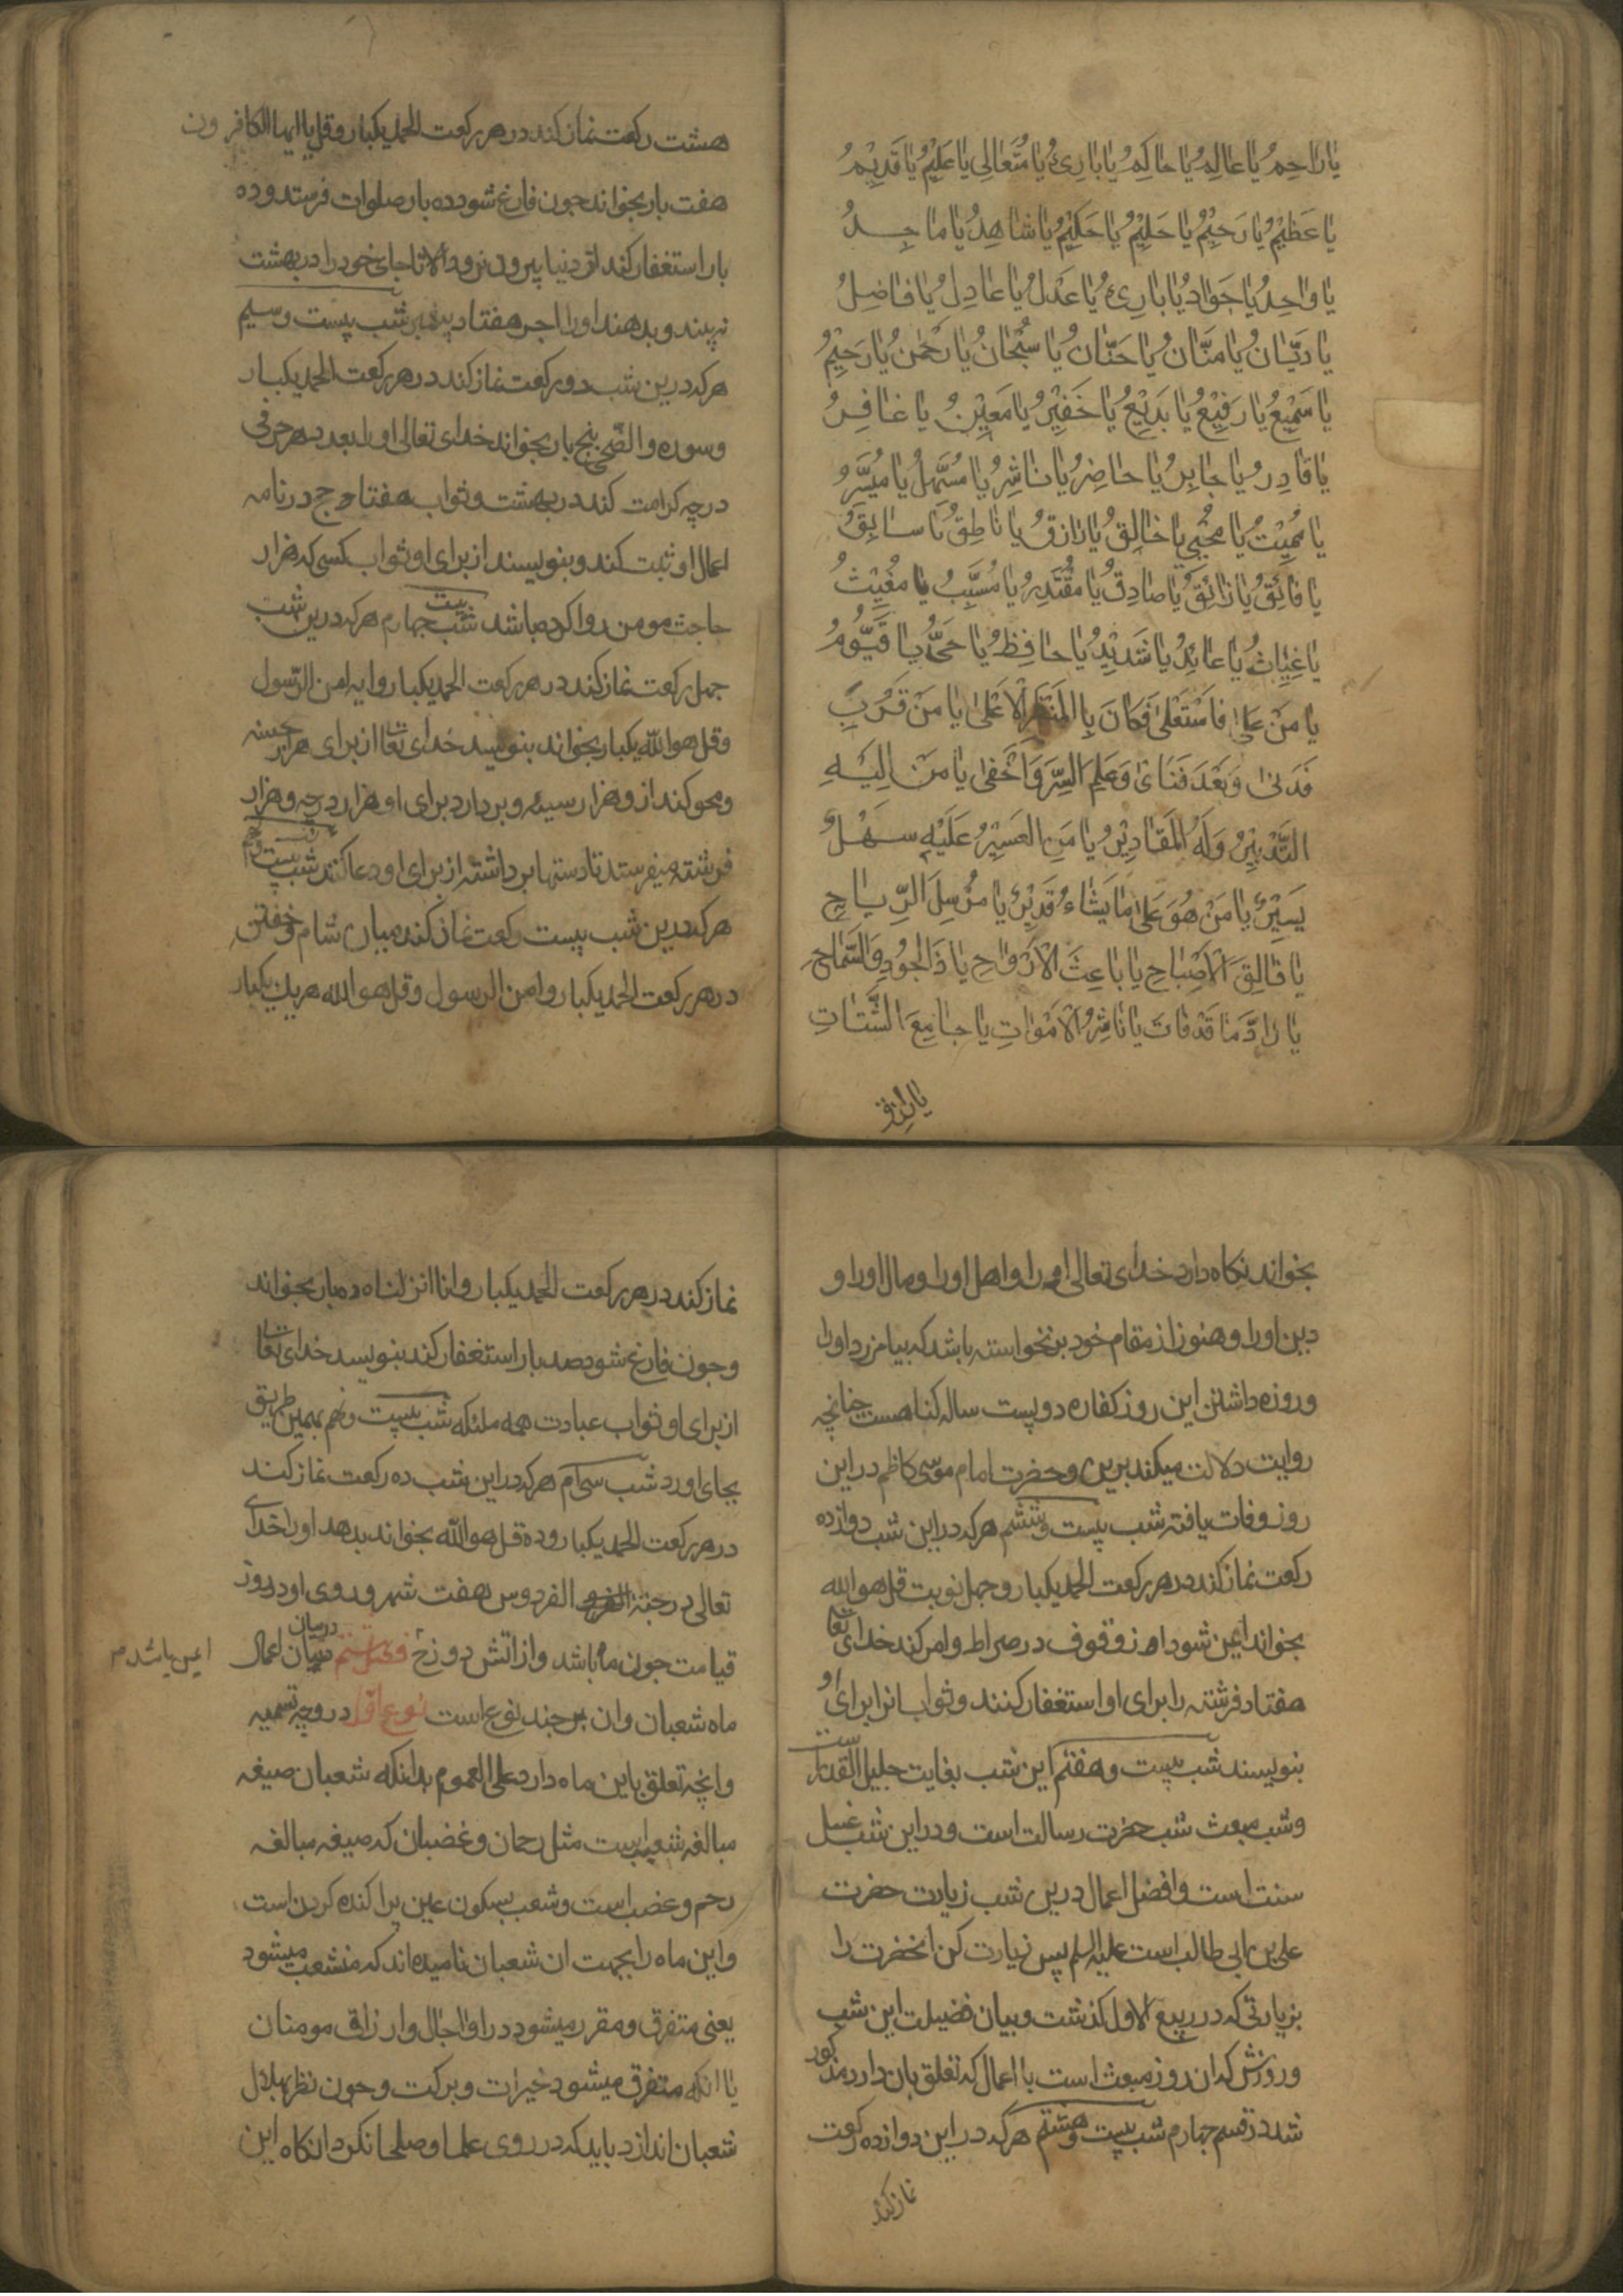 یا راحِمُ یا عالِمُ یا حاکِمُ یا بارِئُ یا مُتَعالِی یا عَلِیْمُ یا قَدِیْمُ
یا عَظِیْمُ یا رَحِیْمُ یا حَلِیْمُ یا حَکِیْمُ یا شاهِدُ یا ماجِدُ
یا واحِدُ یا جَوادُ یا بارِئُ یا عَدْلُ یا عادِلُ یا فاضِلُ
یا دَیّانُ یا مَنّانُ یا حَنّانُ یا سُبْحانُ یا رَحْمنُ یا رَحِیْمُ
یا سَمِیْعُ یا رَفِیْعُ یا بَدِیْعُ یا خَفِیْرُ یا مَعِیْنُ یا غافِرُ
یا قادِرُ یا جابِرُ یا حاضِرُ یا ناشِرُ یا مُسَهِّلُ یا مُیَسِّرُ
یا مُمِیْتُ یا مُحْیِی یا خالِقُ یا رازِقُ یا ناطِقُ یا سابِقُ
یا فائِقُ یا رائِقُ یا صادِقُ یا مُقْتَدِرُ یا مُسَبِّبُ یا مُغِیْثُ
یا غِیاثُ یا عائِدُ یا شَدِیْدُ یا حافِظُ یا حَیُّ یا قَیُّوْمُ
یا مَنْ عَلا فَاسْتَعْلی فَکانَ بِالْمَنْظَرِ الْاَعْلی یا مَنْ قَرُبَ
فَدَنی وَبَعُدَ فَنَای وَعَلِمَ السِّرَّ وَاَخْفی یا مَنْ اِلَیْهِ
التَّدْبِیْرُ وَلَهُ الْمَقادِیْرُ یا مَنِ الْعَسِیْرُ عَلَیْهِ سَهْلٌ
یَسِیْرٌ یا مَنْ هُوَ عَلی مایَشاءُ قَدِیْرٌ یا مُرْسِلَ الرِّیاحِ
یا فالِقَ الْاَصْباحِ یا باعِثَ الْاَرْواحِ یا ذَالْجُوْدِ وَالسَّماحِ
یا رادَّ ما قَدْ فاتَ یا ناشِرَ الْاَمْواتِ یا جامِعَ الشَّتاتِ
یا رازق
هشت رکعت نماز کند در هر رکعت الحمد یکبار و قل یا ایها الکافرون
هفت بار بخواند چون فارغ شود ده بار صلوات فرستد و ده
بار استغفار کند از دنیا بیرون نرود الا تا جای خود را در بهشت
نه بیند و بدهند او را اجر هفتاد پیغمبر شب بیست وسیم
هرکه درین شب دو رکعت نماز کند در هر رکعت الحمد یکبار
وسوره والضحی پنج بار بخواند خدای تعالی او را بعدد هر حرفی
درجه کرامت کند در بهشت و ثواب هفتاد حج در نامه
اعمال او ثبت کند و بنویسند از برای او ثواب کسی که هزار
حاجت مومن روا کرده باشد شب بیست چهارم هرکه درین شب
چهل رکعت نماز کند در هر رکعت الحمد یکبار و ایه امن الرسول
وقل هو الله یکبار بخواند بنویسد خدای تعا از برای او هزار حسنه
ومحو کند از و هزار سیئه و بردارد برای او هزار درجه و هزار
فرشته میفرستد تا دستها برداشته از برای او دعا کنند شب بیست و پنجم
هرکه درین شب بیست رکعت نماز کند میان شام و خفتن
در هر رکعت الحمد یکبار و امن الرسول و قل هو الله هریک یکبار
بخواند نگاه دارد خدای تعالی او را و اهل او را و مال او را و
دین او را و هنوز از مقام خود برنخواسته باشد که بیامرزد او را
وروزه داشتن این روز کفاره دویست ساله کناهست چنانچه
روایت دلالت میکند برین و حضرت امام موسی کاظم در این
روز وفات یافته شب بیست وششم هرکه در این شب دوازده
رکعت نماز کند در هر رکعت الحمد یکبار و چهل نوبت قل هو الله
بخواند ایمن شود از وقوف در صراط و امر کند خدای تعا
هفتاد فرشته را برای او استغفار کنند و ثواب انرا برای او
بنویسند شب بیست وهفتم این شب بغایت جلیل القدر است
وشب مبعث شب حضرت رسالت است و در این شب غسل
سنت است و افضل اعمال درین شب زیارت حضرت
علی بن ابی طالب است علیه السلم پس زیارت کن انحضرت را
بزیارتی که در ربیع الاول گذشت و بیان فضیلت این شب
وروزش که ان روز مبعث است با اعمال که تعلق بان دارد مذکور
شد در قسم چهارم شب بیست وهشتم هرکه در این دوازده رکعت
نماز کند
نماز کند در هر رکعت الحمد یکبار و انا انزلناه ده بار بخواند
وچون فارغ شود صد بار استغفار کند بنویسد خدای تعا
از برای او ثواب عبادت همه ملئکه شب بیست ونهم بهمین طریق
بجای اورد شب سی ام هرکه در این شب ده رکعت نماز کند
در هر رکعت الحمد یکبار و ده قل هو الله بخواند بدهد او را خدای
تعالی در جنة الفردوس هفت شهر و روی او در روز
قیامت چون ماه باشد و از اتش دوزخ فصل ششم در بیان اعمال
ایمن باشد
ماه شعبان و ان بر چند نوع است نوع اول در وجه تسمیه
وانچه تعلق باین ماه دارد علی العموم بدانکه شعبان صیغه
مبالغه شعب است مثل رحمان و غضبان که صیغه مبالغه
رحم و غضب است و شعب بسکون عین پراکنده کردن است
واین ماه را بجهت ان شعبان نامیده اند که منشعب میشود
یعنی متفرق و مقرر میشود در او اجال و ارزاق مومنان
یا انکه متفرق میشود خیرات و برکت و چون نظر بهلال
شعبان اندازد باید که در روی علما و صلحا نکرد انکاه این